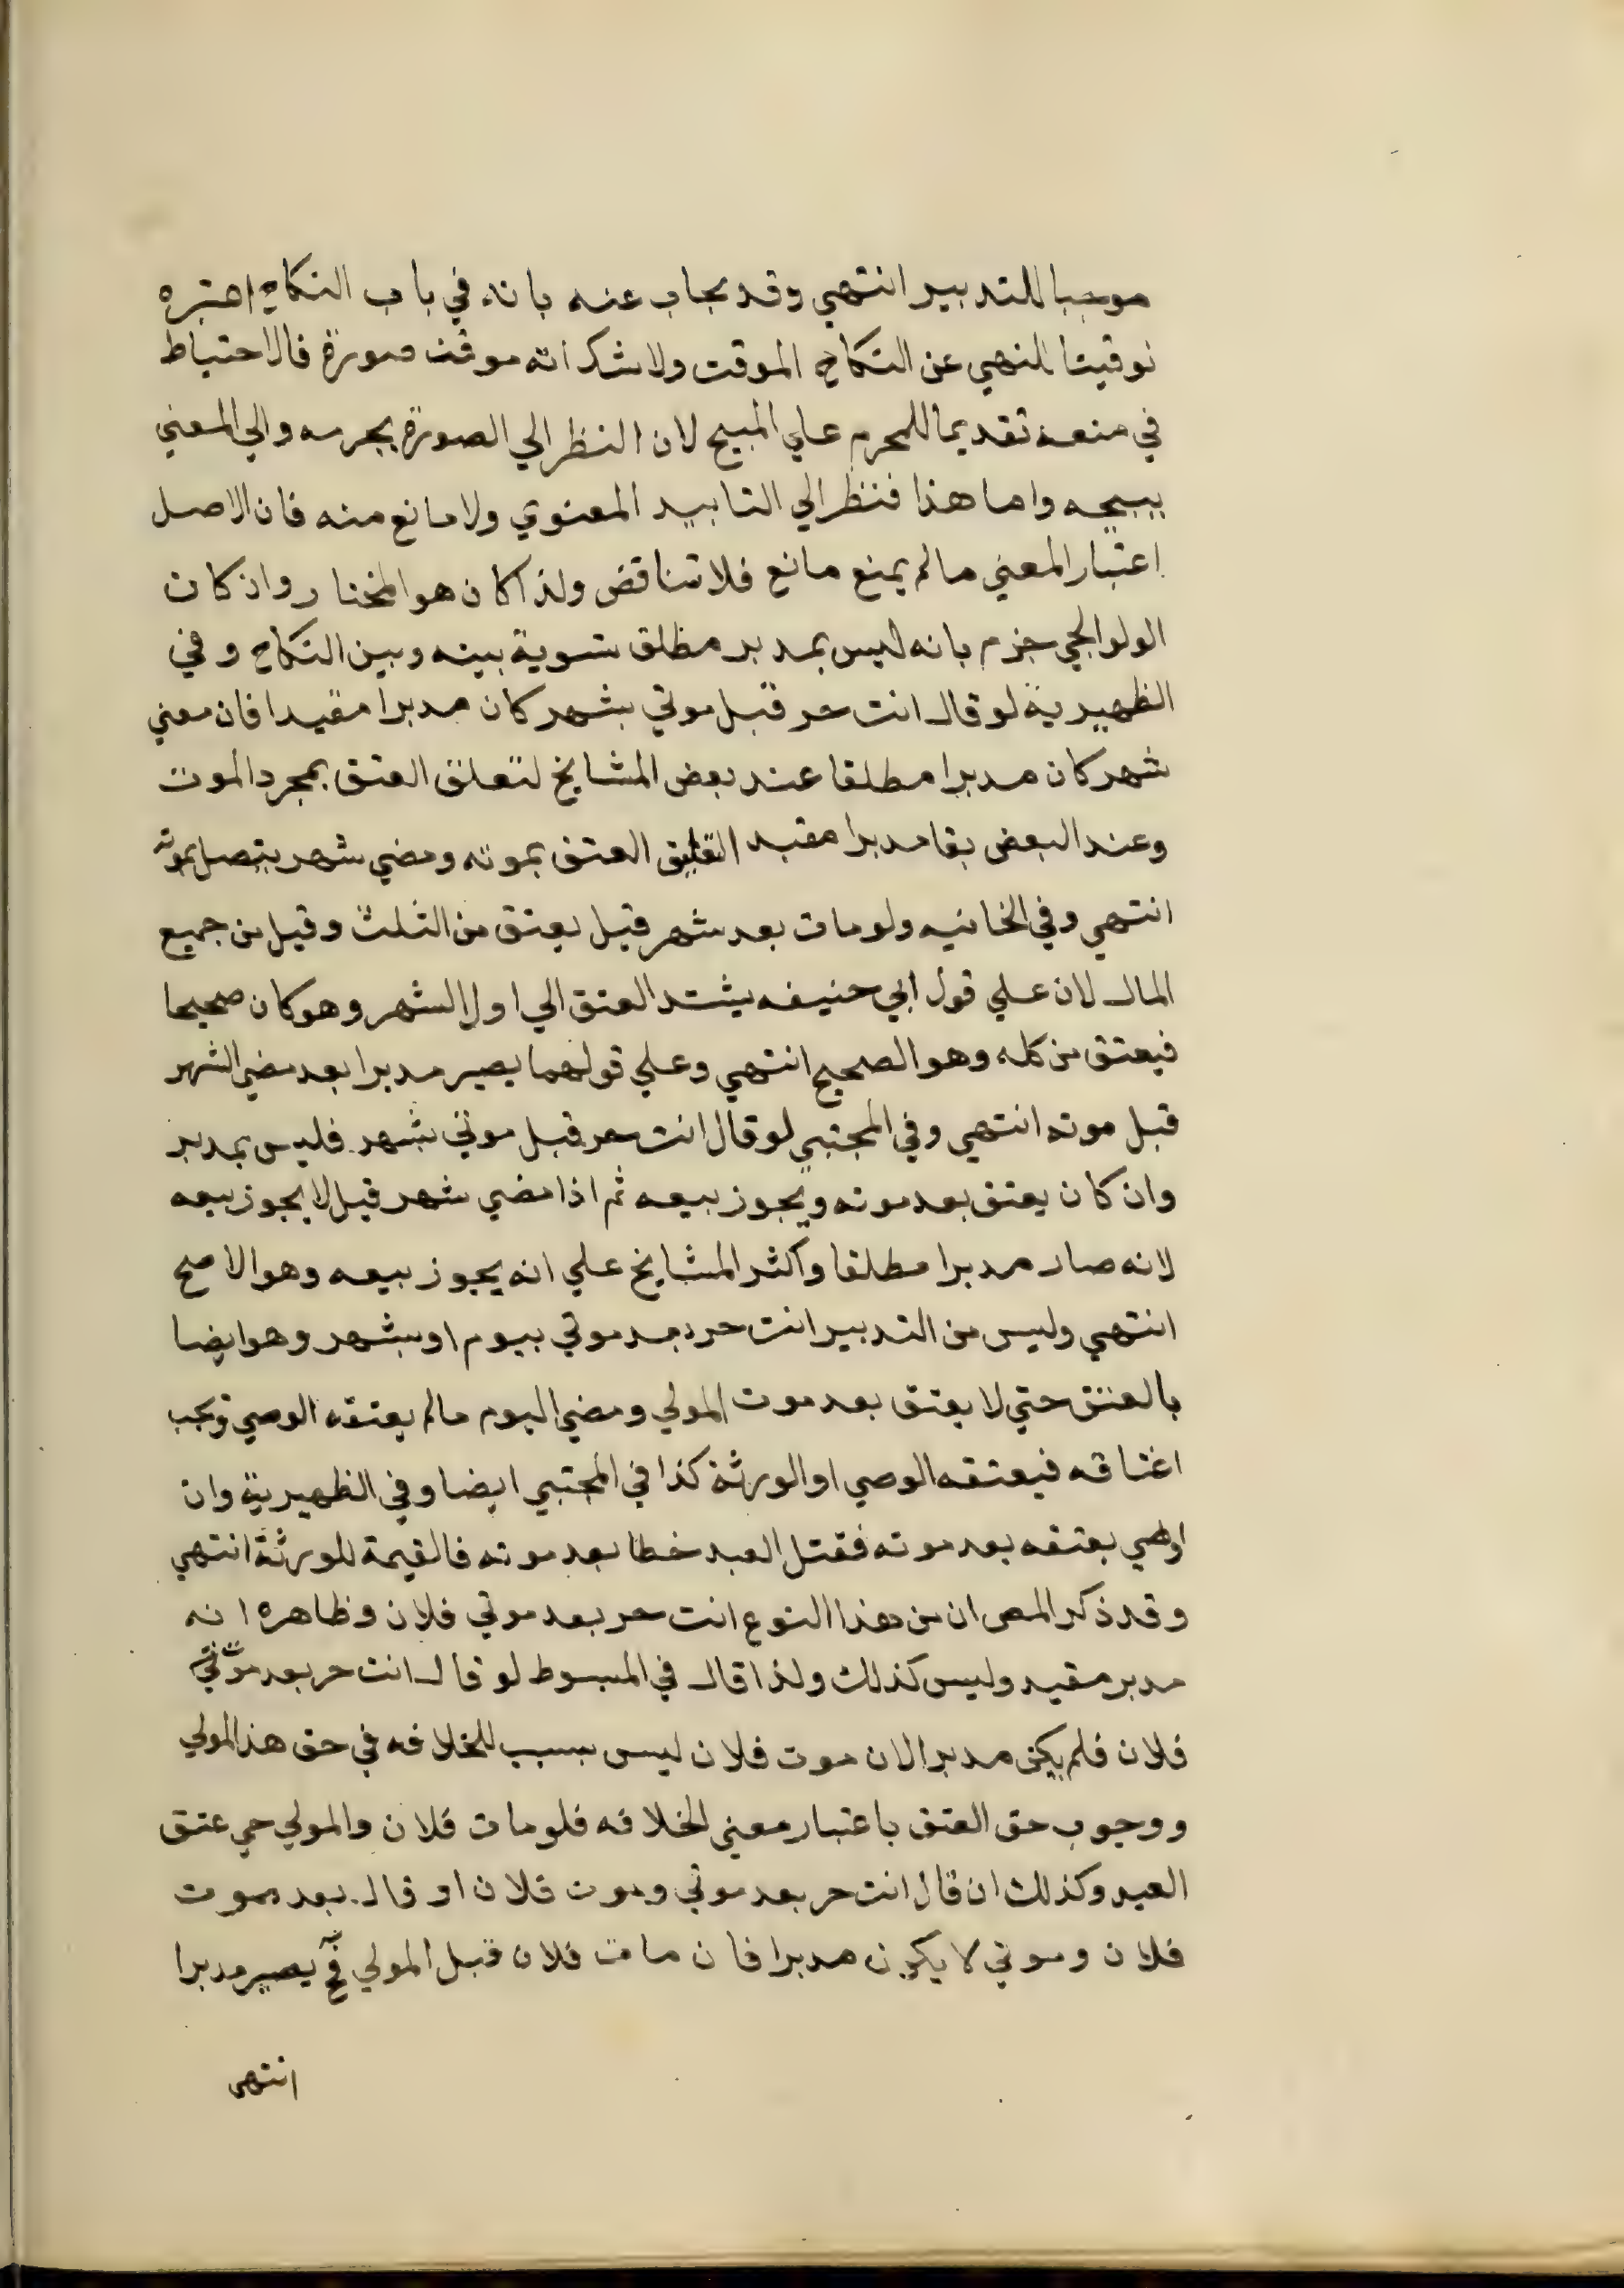 موجبا للتدبير انتهي وقد يجاب عنه بانه في باب النكاح اعتبره
توقيتا للنهي عن النكاح الموقت ولا شك انه موقت صورة فالاحتياط
في منعه تقديما للمحرم علي المبيح لان النظر الي الصورة يحرمه والي المعني
يبيحه واما هذا فنظر الي التابيد المعنوي ولا مانع منه فان الاصل
اعتبار المعني ما لم يمنع مانع فلا تناقض ولذا كان هو المختار وان كان
الولوالجي جزم بانه ليس بمدبر مطلق تسوية بينه وبين النكاح وفي
الظهيرية لو قال انت حر قبل موتي بشهر كان مدبرا مقيدا فان مضي
شهر كان مدبرا مطلقا عند بعض المشايخ لتعلق العتق بمجرد الموت
وعند البعض بقا مدبرا مقيد التعليق العتق بموته ومضي شهر يتصل بموته
انتهي وفي الخانيه ولو مات بعد شهر قيل يعتق من الثلث وقيل من جميع
المال لان علي قول ابي حنيفه يستند العتق الي اول الشهر وهو كان صحيحا
فيعتق من كله وهو الصحيح انتهي وعلي قولهما يصير مدبرا بعد مضي الشهر
قبل موته انتهي وفي المجتبي لو قال انت حر قبل موتي بشهر فليس بمدبر
وان كان يعتق بعد موته ويجوز بيعه ثم اذا مضي شهر قيل لا يجوز بيعه
لانه صار مدبرا مطلقا واكثر المشايخ علي انه يجوز بيعه وهو الاصح
انتهي وليس من التدبير انت حر بعد موتي بيوم او بشهر وهو ايضا
بالعتق حتي لا يعتق بعد موت المولي ومضي اليوم ما لم يعتقه الوصي ويجب
اعتاقه فيعتقه الوصي او الورثة كذا في المجتبي ايضا وفي الظهيرية وان
اوصي بعتقه بعد موته فقتل العبد خطا بعد موته فالقيمة للورثة انتهي
وقد ذكر المص ان من هذا النوع انت حر بعد موتي فلان وظاهره انه
مدبر مقيد وليس كذلك ولذا قال في المبسوط لو قال انت حر بعد موت
فلان فلم يكن مدبرا لان موت فلان ليس بسبب للخلافه في حق هذا المولي
ووجوب حق العتق باعتبار معني الخلافه فلو مات فلان والمولي حي عتق
العبد وكذلك ان قال انت حر بعد موتي وموت فلان او قال بعد موت
فلان وموتي لا يكون مدبرا فان مات فلان قبل المولي فح يصير مدبرا
انتهي